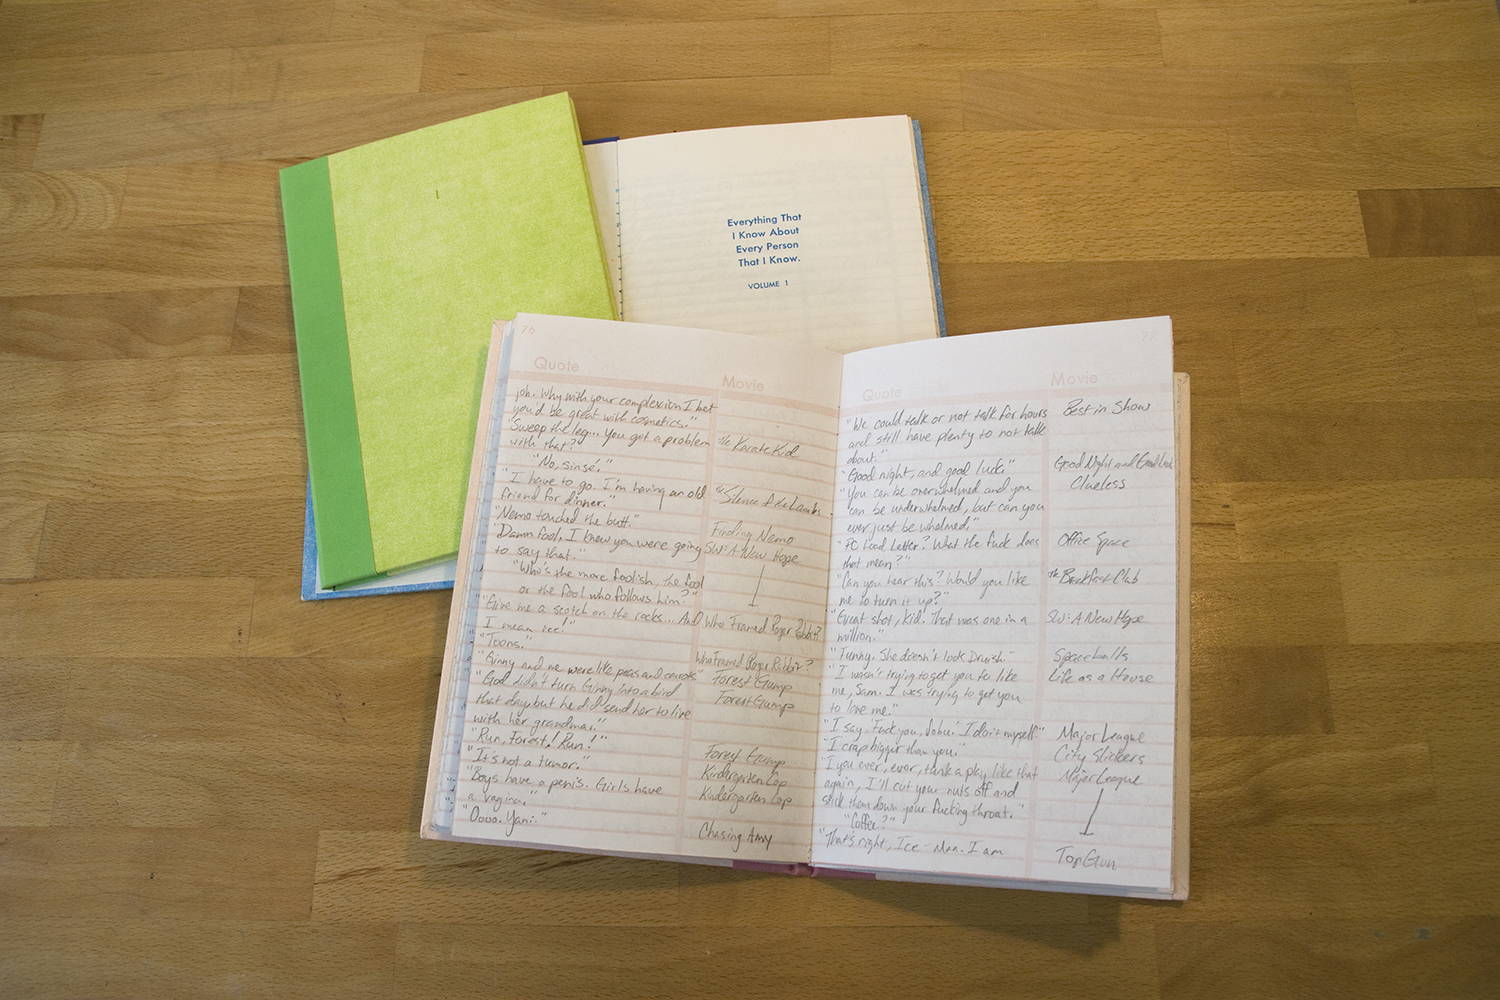 1
Everything That
I Know About
Every Person
That I Know.
VOLUME 1
76
Quote Movie
job. Why with your complexion I bet
you'd be great with cosmetics."
"Sweep the leg... You got a problem the Karate Kid
with that?"
"No, sinsé."
"I have to go. I'm having an old the Silence of the Lambs
friend for dinner."
"Nemo touched the butt." Finding Nemo
"Damn fool, I knew you were going SW: A New Hope
to say that."
"Who's the more foolish, the fool
or the fool who follows him?"
"Give me a scotch on the rocks... And Who Framed Roger Rabbit?
I mean ice!"
"Toons." Who Framed Roger Rabbit?
"Ginny and me were like peas and carrots" Forest Gump
"God didn't turn Ginny into a bird Forest Gump
that day but he did send her to live
with her grandma."
"Run, Forest! Run!" Forest Gump
"It's not a tumor." Kindergarten Cop
"Boys have a penis. Girls have Kindergarten Cop
a vagina."
"Oooo. Yani." Chasing Amy
77
Quote Movie
"We could talk or not talk for hours Best in Show
and still have plenty to not talk
about."
"Good night, and good luck." Good Night and Good Luck
"You can be overwhelmed and you Clueless
can be underwhelmed, but can you
ever just be whelmed."
"PC Load Letter? What the fuck does Office Space
that mean?"
"Can you hear this? Would you like the Breakfast Club
me to turn it up?"
"Great shot, kid. That was one in a SW: A New Hope
million."
"Funny. She doesn't look Druish." Spaceballs
"I wasn't trying to get you to like Life as a House
me, Sam. I was trying to get you
to love me."
"I say 'Fuck you, Jobu.' I do it myself." Major League
"I crap bigger than you." City Slickers
"I you ever, ever, tank a play like that Major League
again, I'll cut your nuts off and
stick them down your fucking throat."
"Coffee?"
"That's right, Ice - Man. I am Top Gun